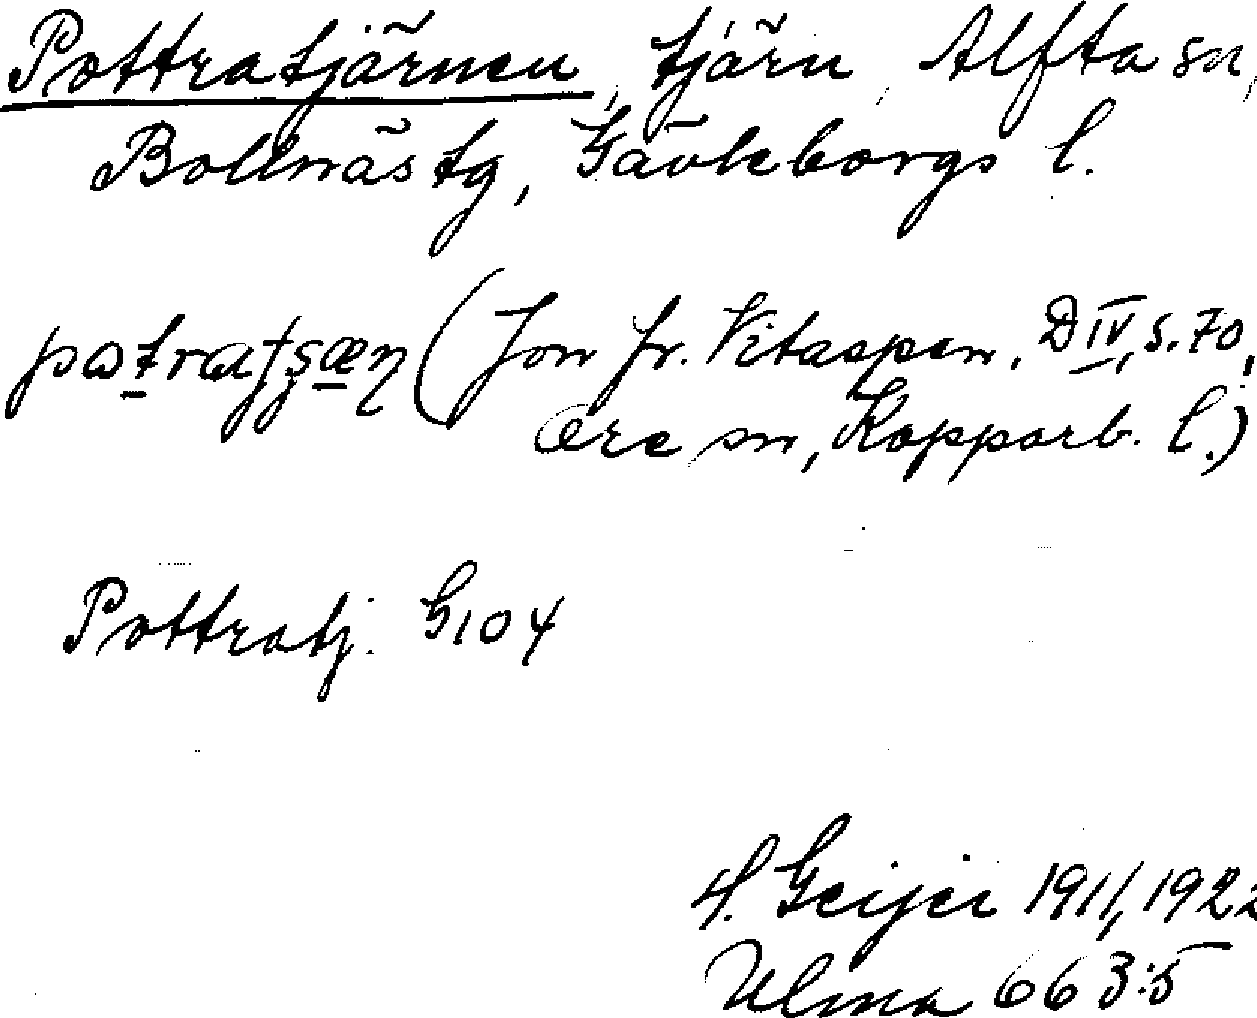 Pottratjärnen, tjärn, Alfta sn,
Bollnäs tg, Gävleborgs l.
(Jon fr. Vitaspen, D IV, s. 70,
Ore sn, Kopparb. l.)
Pottratj. G104
H. Geijer 1911, 1922
Ulma 663:5